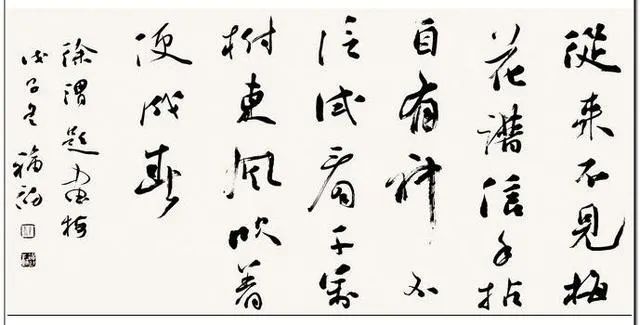 從来不見梅
花譜信手拈
自有神不
信試看千萬
樹東風吹着
便成春
徐渭題畫梅
戊子冬